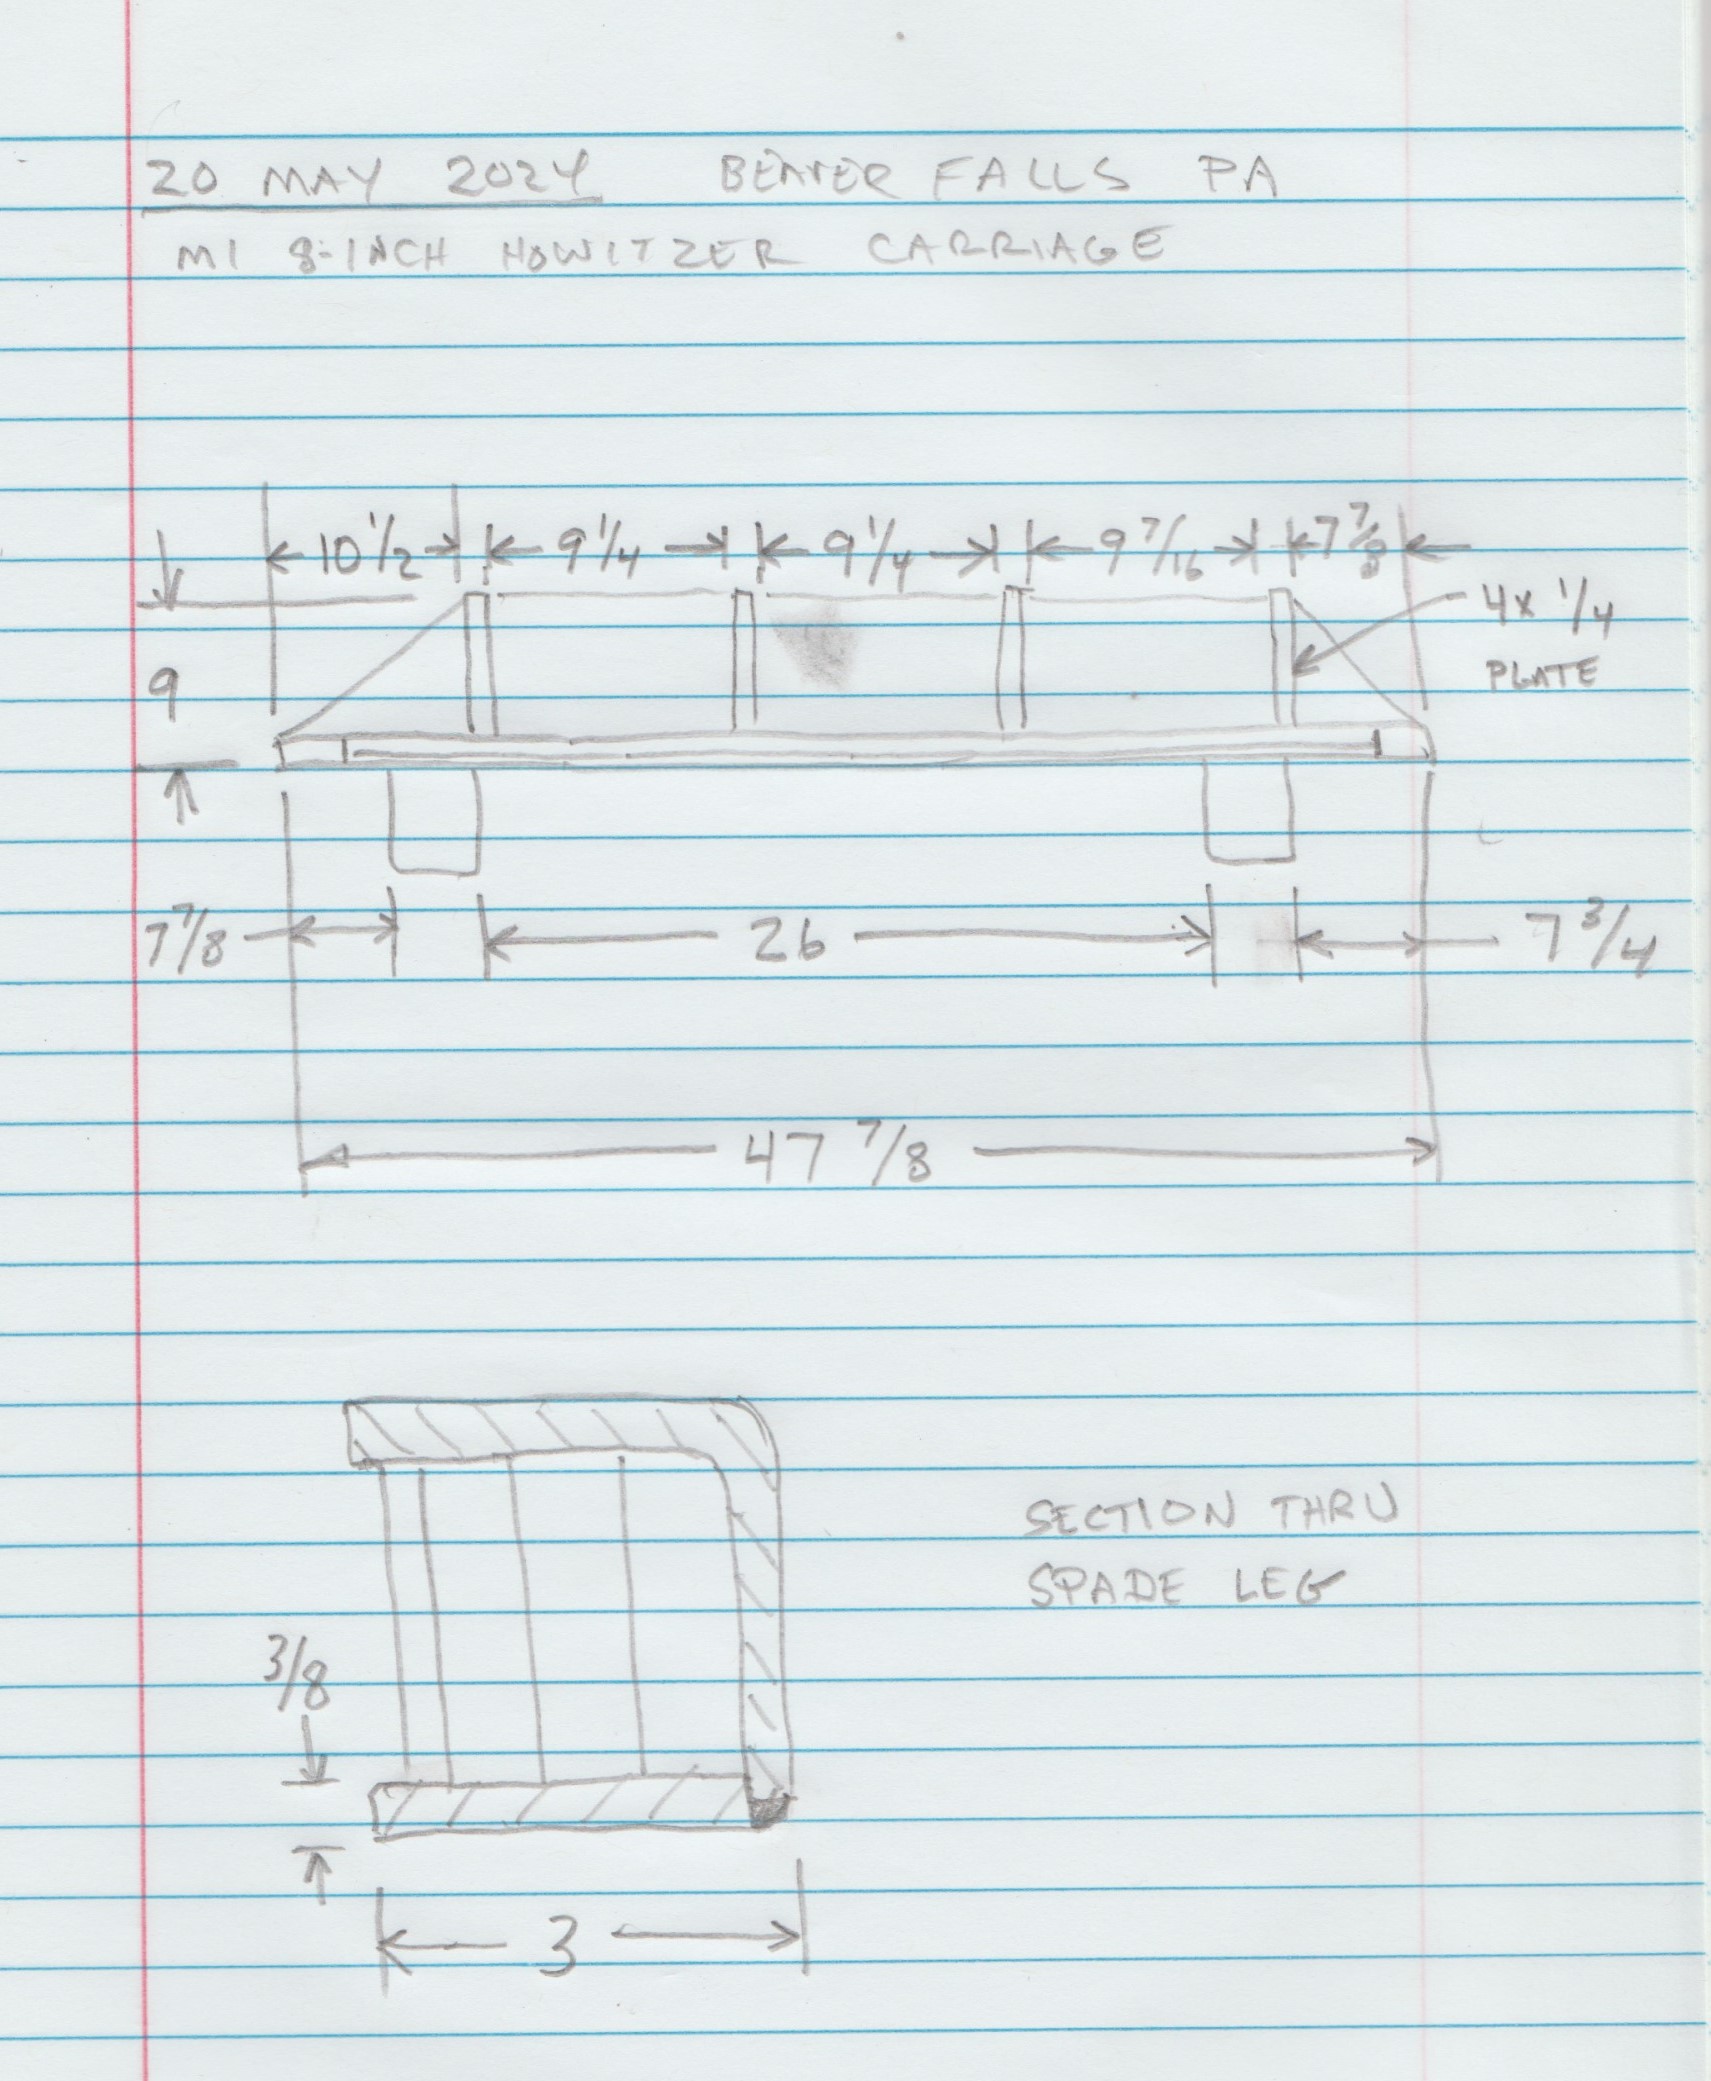 20 MAY 2024 BEAVER FALLS PA
M1 8-INCH HOWITZER CARRIAGE
10 1/2 9 1/4 9 1/4 9 7/16 7 7/8
4x 1/4
PLATE
9
7 7/8 26 7 3/4
47 7/8
SECTION THRU
SPADE LEG
3/8
3